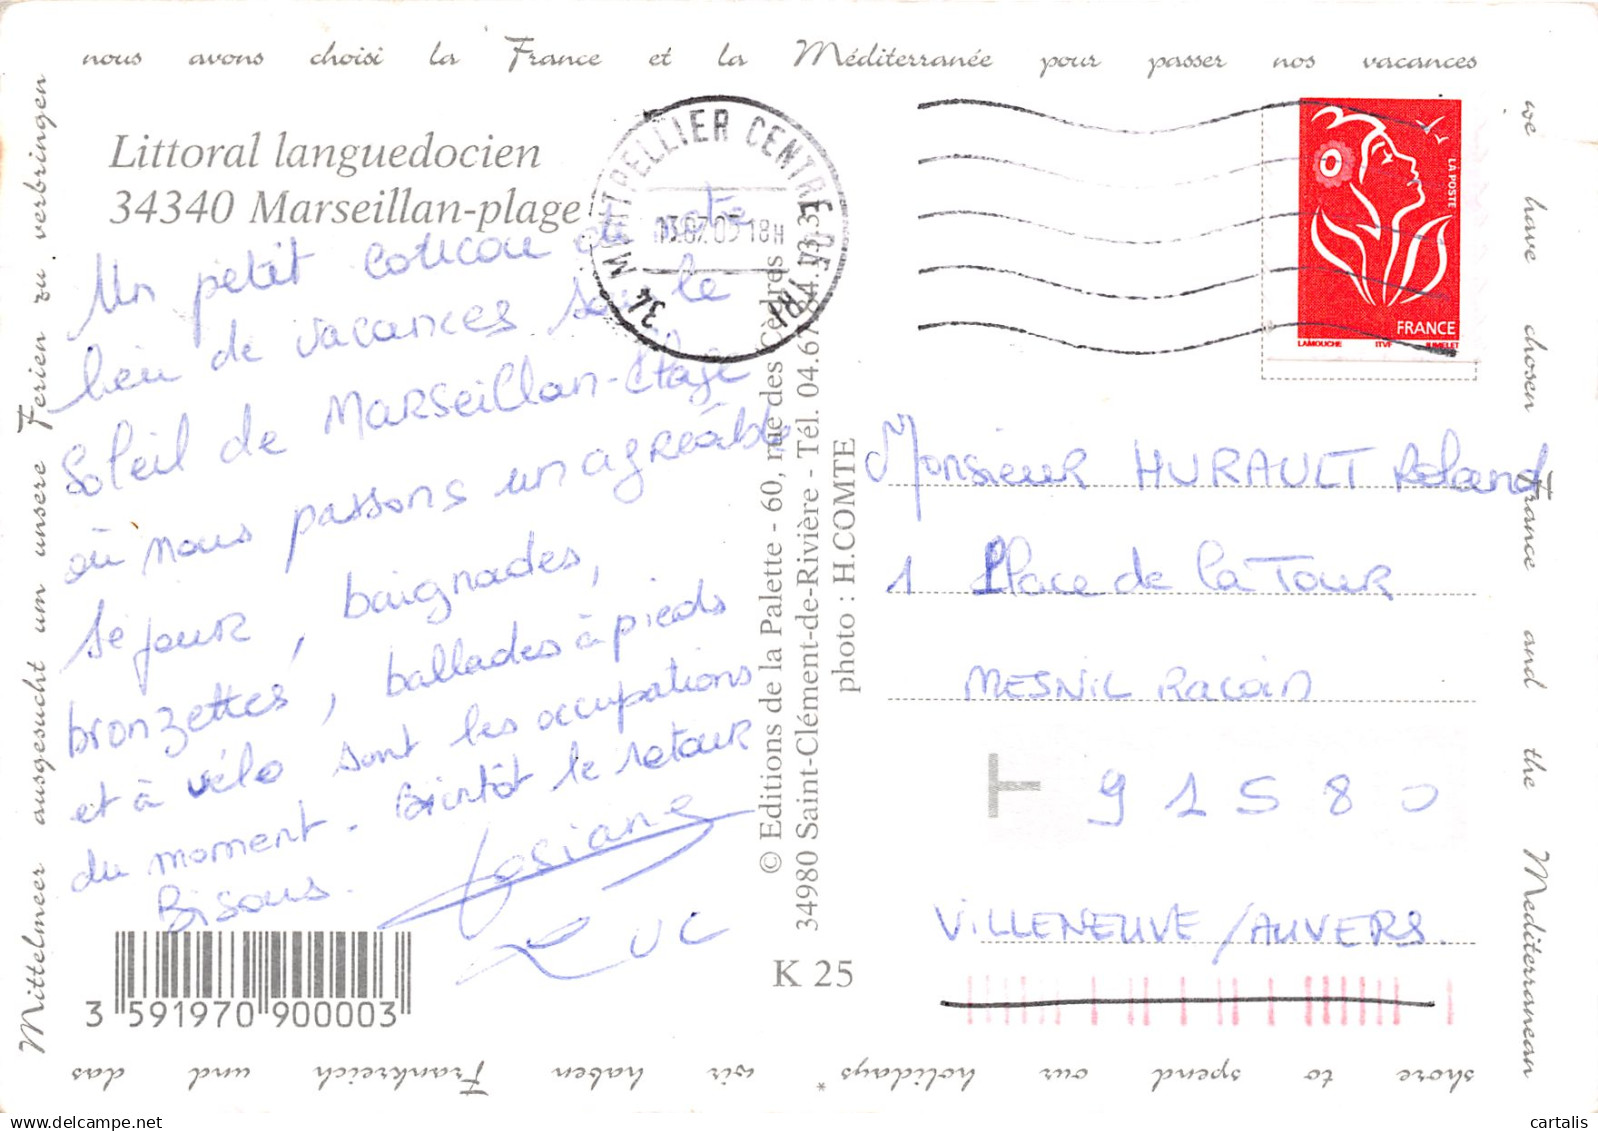 nous avons choisi la France et la Méditerranée pour passer nos vacances
we have chosen France and the Mediterranean
shore to spend our holidays * wir haben Frankreich und das
Mittelmeer ausgesucht um unsere Ferien zu verbringen
Littoral languedocien
34340 Marseillan-plage
Un petit coucou de notre
lieu de vacances sous le
Soleil de Marseillan-Plage
où nous passons un agréable
séjour, baignades,
bronzettes, ballades à pieds
et à vélo sont les occupations
du moment. Bientôt le retour
Bisous.
Josiane
Luc
3 591970 900003
© Editions de la Palette - 60, rue des Cèdres
34980 Saint-Clément-de-Rivière - Tél. 04.67.84.13.33
photo : H.COMTE
K 25
34 MONTPELLIER CENTRE DE TRI
18H
LA POSTE
FRANCE
LAMOUCHE ITVF JUMELET
Monsieur HURAULT Roland
1 Place de la Tour
MESNIL Racoin
T
91580
VILLENEUVE/AUVERS.
cartalis